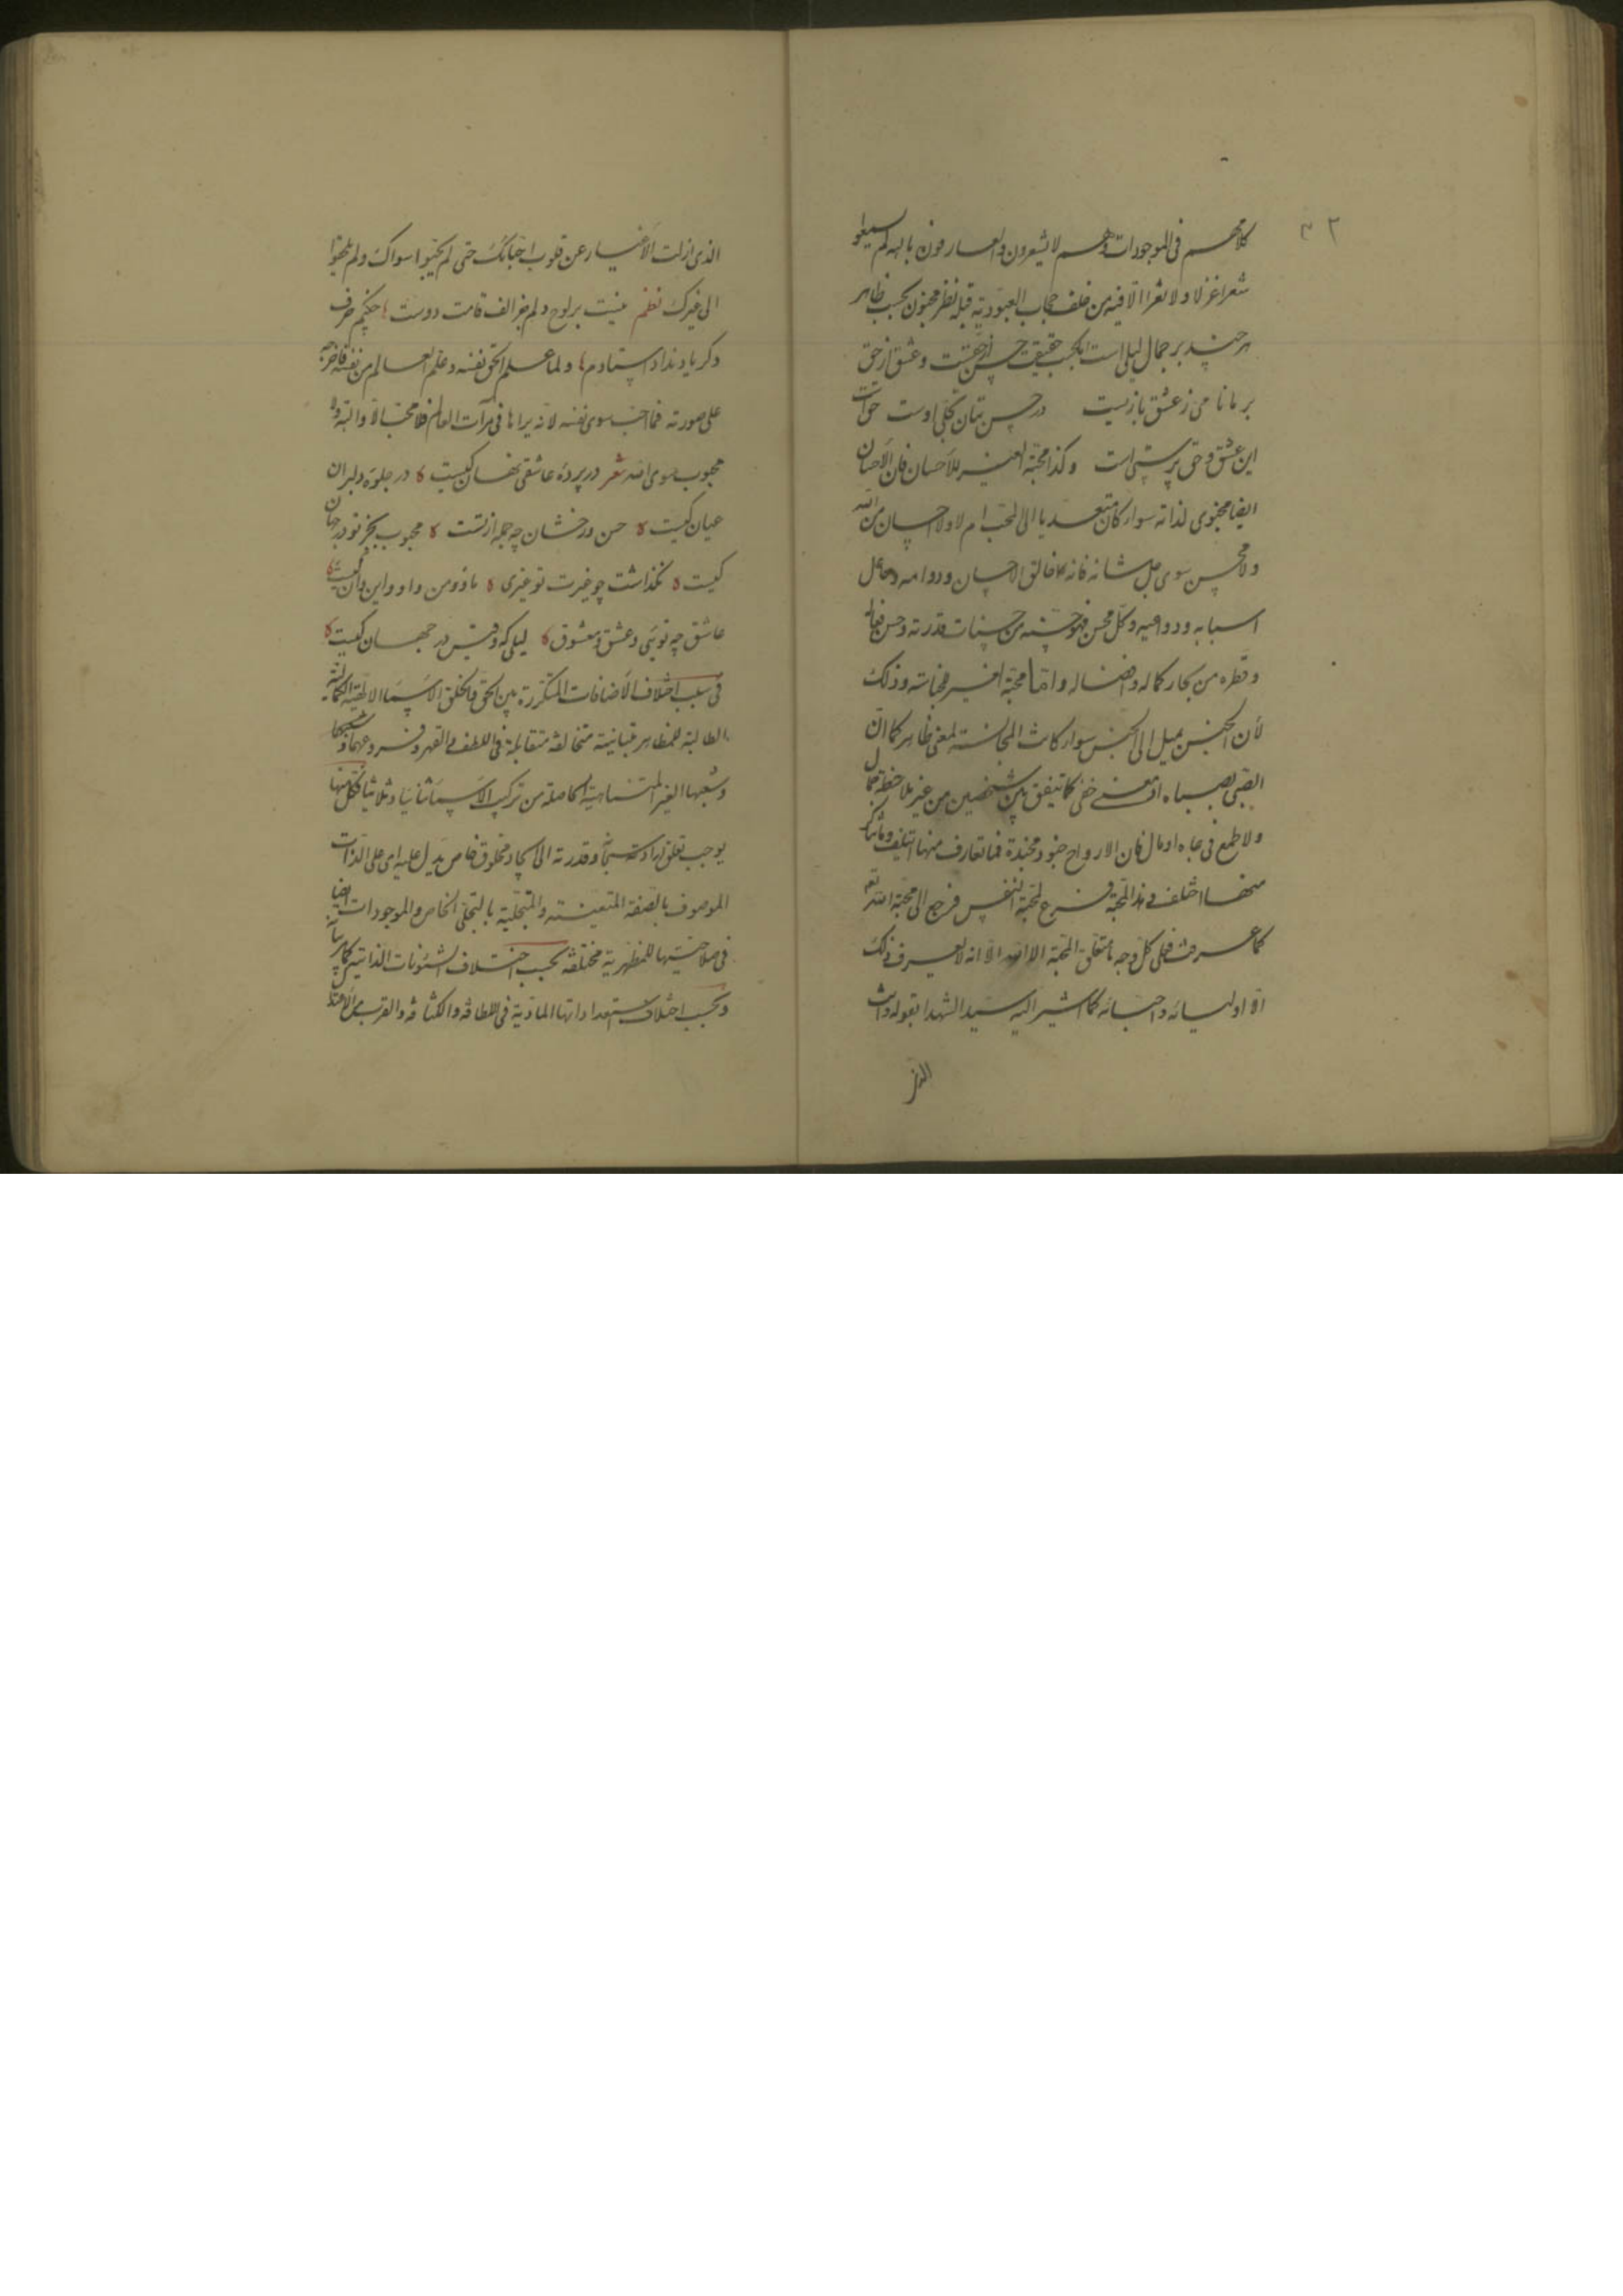 ٣٢
كلامهم فی الموجودات وهم لا يشعرون والعارفون بالله لم يسمعوا
شعرا غزلا ولا لغزا الا فيه من خلف حجاب العبودية قبله نظر مجنون بحسب ظاهر
هر چند بر جمال ليلی است اما بحسب حقيقت حسن از حقست وعشق از حق
بر ما نا می ز عشق بازيست در حسن بتان تجلی اوست حق است
اين عشق و حق پرستی است وكذا محبة الغير للأحسان فان الاحسان
ايضا محبوب لذاته سواء كان متعديا الی المحب ام لا ولا احسان من الله
ولا محسن سوی جل شانه فانه خالق الاحسان ودوامه وجاعل
اسبابه ودواعيه وكل محسن فهو حسنة من حسنات قدرته وحسن فعاله
وقطره من بحار كماله وافضاله واما محبة الغير للمجانسة وذلك
لأن الجنس يميل الی الجنس سواء كانت المجانسة لمعنی ظاهر كما ان
الصبی بصباه او معنی خفی كما يتفق بين شخصين من غير ملاحظة جمال
ولا طمع فی جاه او مال فان الارواح جنود مجندة فما تعارف منها ائتلف وما تناكر
منها اختلف وهذا المحبة فرع لمحبة النفس فرجع الی محبة الله تعه
كما عرفت فعلی كل وجه ما متعلق المحبة الا الله الا انه لا يعرف ذلك
الا اوليائه واحبائه كما اشير اليه سيد الشهدا بقوله وانت
الذی
الذی ازلت الأغيار عن قلوب احبائك حتی لم يحبوا سواك ولم يلجئوا
الی غيرك نظم نيست بر لوح دلم جز الف قامت دوست چكنم حرف
دكر ياد نداد استادم ولما علم الحق نفسه وعلم العالم من نفسه فاخرجه
علی صورته فما احب سوی نفسه لانه يراها فی مرآت العالم فلا محب الا والله ولا
محبوب سوی الله شعر در پرده عاشقی نهان كيست در جلوه دلبران
عيان كيست حسن در خشان چه جمله از تست محبوب بجز تو در جهان
كيست نكذاشت چو غيرت تو غيری ما ومن واو واين وآن كيست
عاشق چه توئی وعشق ومعشوق ليلی كه وقيس در جهان كيست
فی سبب اختلاف الأضافات المتكررة بين الحق والخلق الاسما الالهية الكمالية
الطالبة للمظاهر متباينة متخالفة متقابلة فی اللطف والقهر وفروعهما وشعبها
وشعبها الغير المتناهية الحاصلة من تركيب الأسما ثنائيا وثلاثيا فكل منها
يوجب تعلق ارادته سبحانه وقدرته الی ايجاد مخلوق خاص يدل عليه ای علی الذات
الموصوف بالصفة المتعينة والمتجلية بالتجلی الخاص والموجودات ايضا
فی صلاحيتها للمظهرية مختلفة بحسب اختلاف الشئونات الذاتية كما مر بيانه
وبحسب اختلاف استعداداتها المادية فی اللطافة والكثافة والقرب من الاعتدال